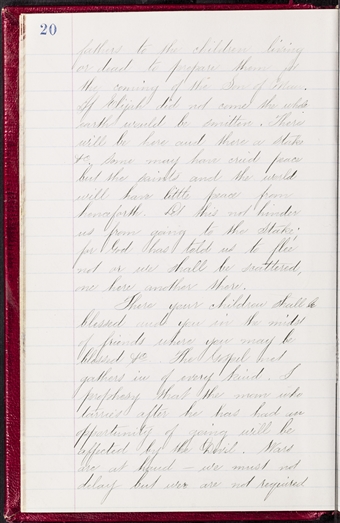 20
fathers to the children living
or dead to prepare them for
the coming of the Son of Man.
If Elijah did not come the whole
earth would be smitten. There
will be here and there a stake
&c, some may have cried peace
but the saints and the world
will have little peace from
henceforth. Let this not hinder
us from going to the stake;
for God has told us to flee
not or we shall be scattered,
one here another there.
There your children shall be
blessed and you in the midst
of friends where you may be
blessed &c. The Gospel net
gathers in of every kind. I
prophesy that the man who
tarries after he has had an
opportunity of going will be
afflicted by the Devil. Wars
are at hand – we must not
delay but we are not required